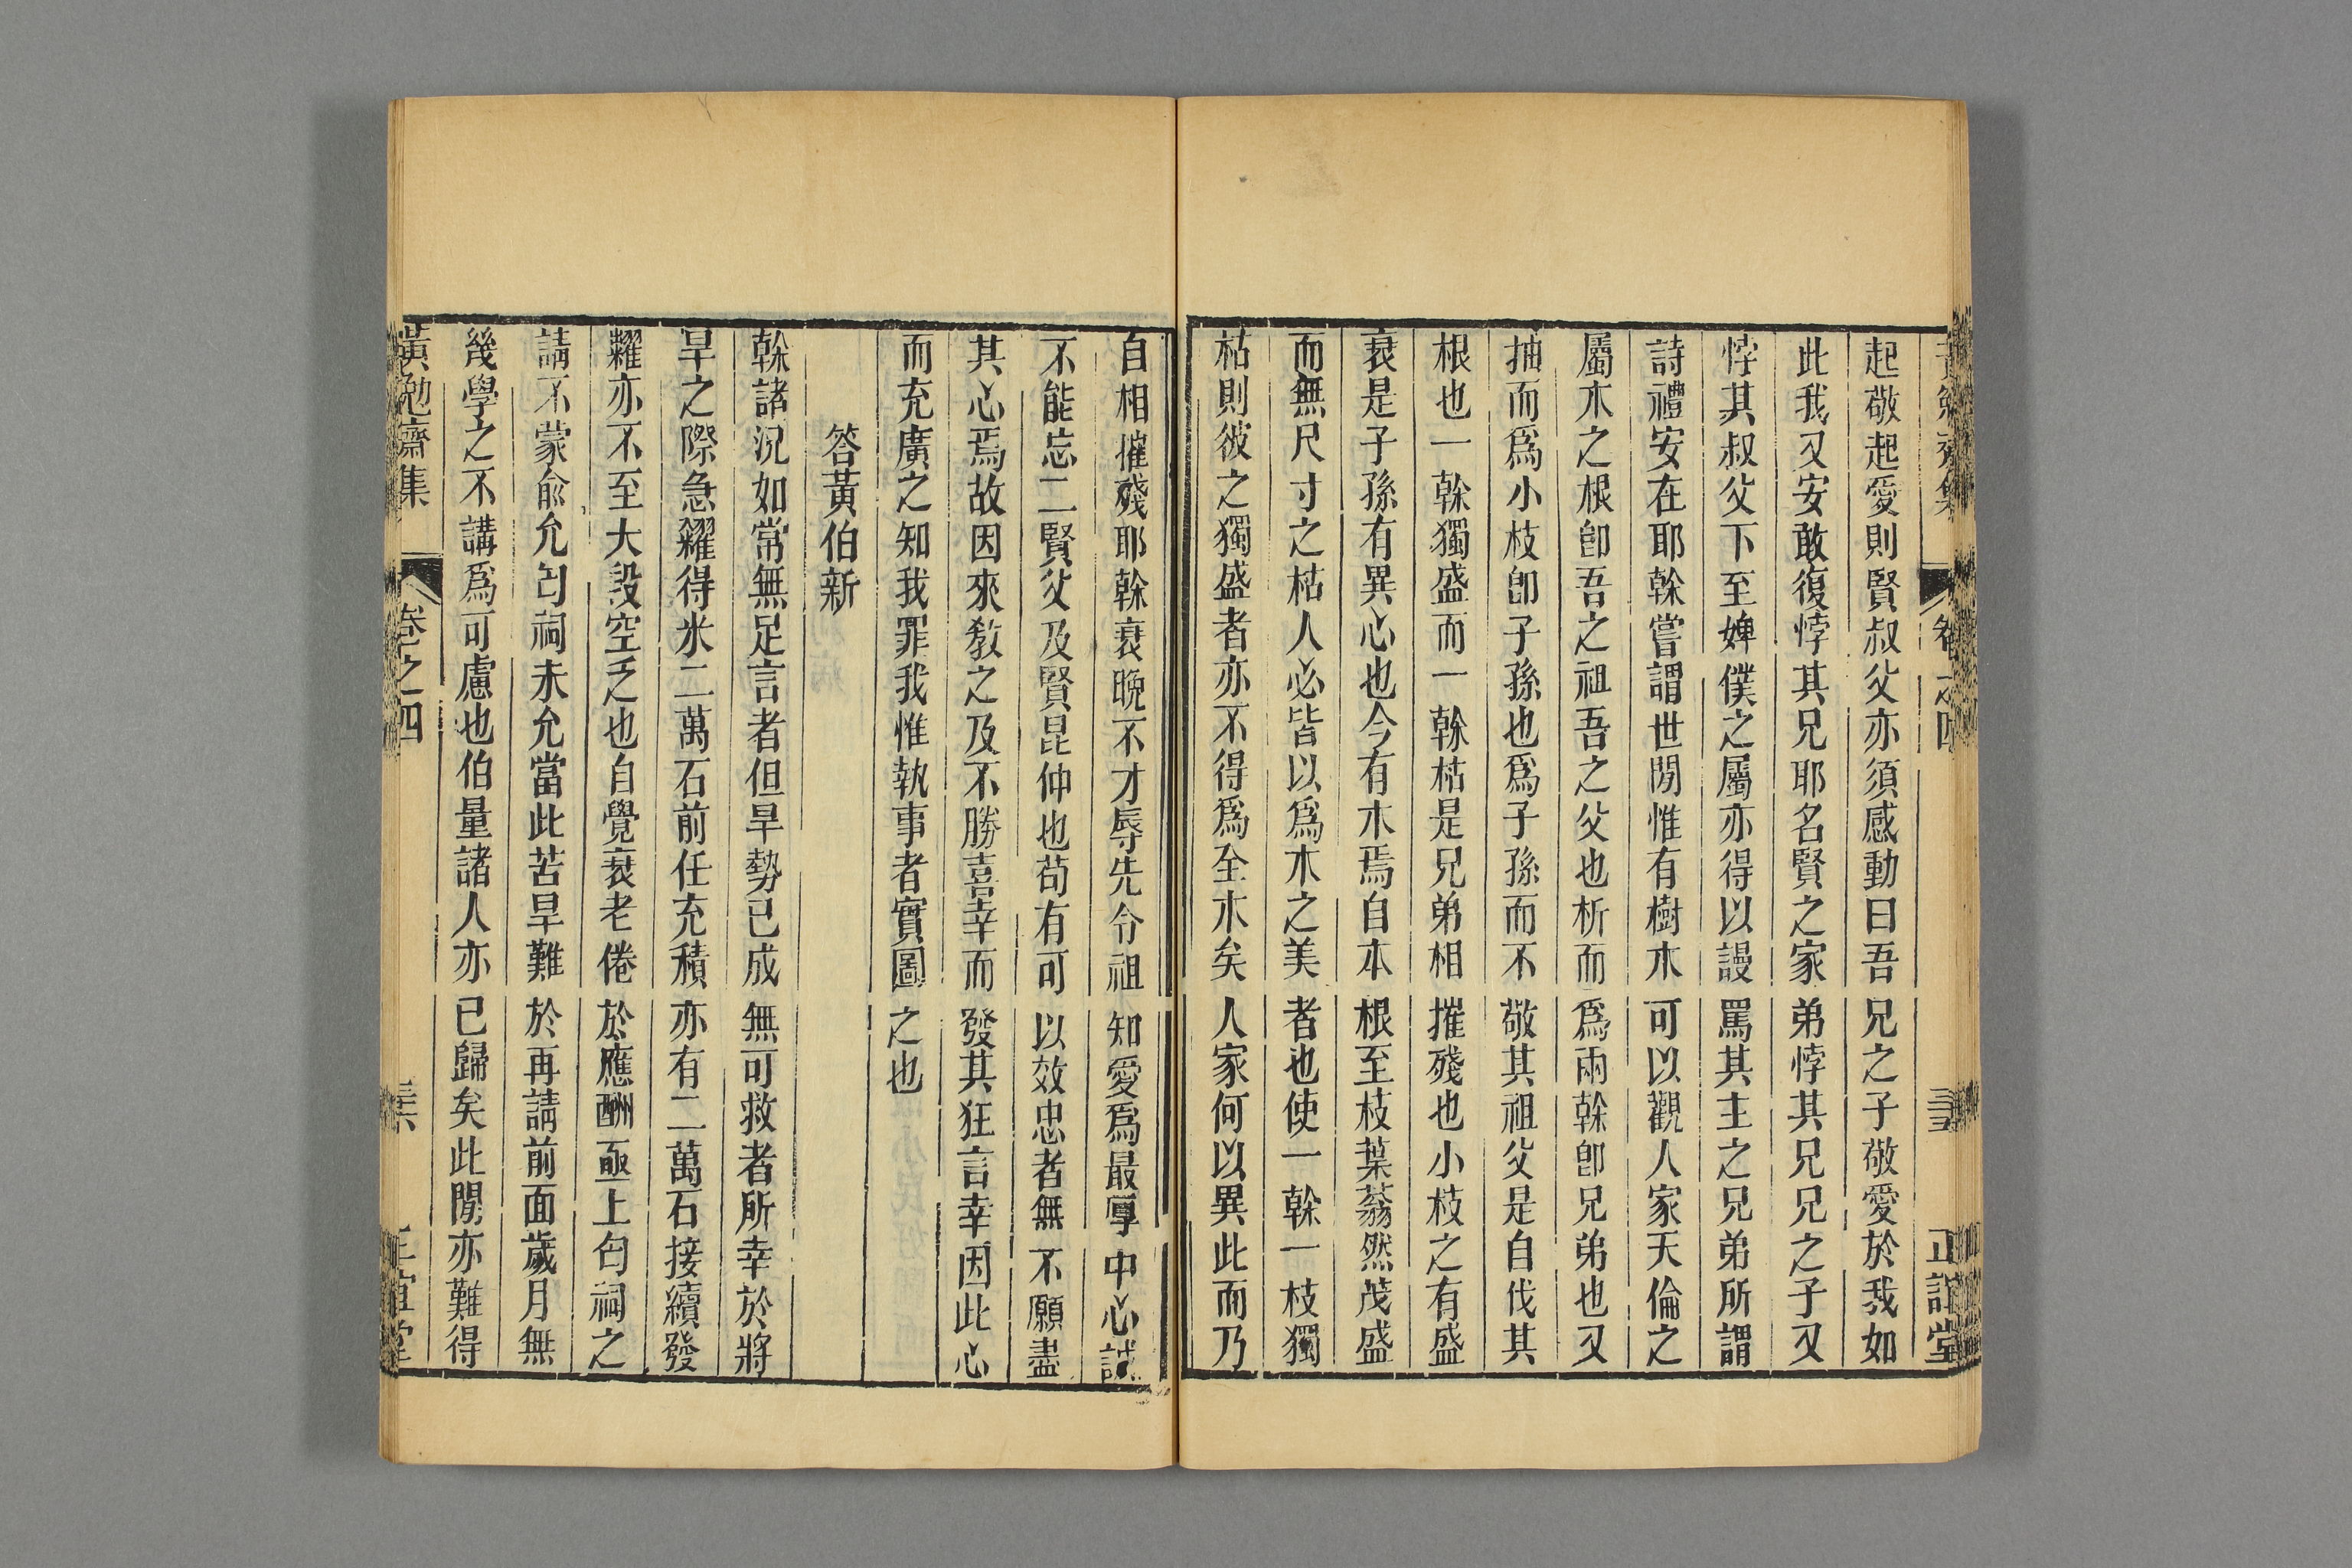 起敬起愛則賢叔父亦須感動曰吾兄之子敬愛於我如
此我又安敢復悖其兄耶名賢之家弟悖其兄兄之子又
悖其叔父下至婢僕之屬亦得以謾罵其主之兄弟所謂
詩禮安在耶榦嘗謂世間惟有樹木可以觀人家天倫之
屬木之根卽吾之祖吾之父也析而爲兩榦卽兄弟也又
抽而爲小枝卽子孫也爲子孫而不敬其祖父是自伐其
根也一榦獨盛而一榦枯是兄弟相摧殘也小枝之有盛
衰是子孫有異心也今有木焉自本根至枝葉蓊然茂盛
而無尺寸之枯人必皆以爲木之美者也使一榦一枝獨
枯則彼之獨盛者亦不得爲全木矣人家何以異此而乃
自相摧殘耶榦衰晚不才辱先令祖知愛爲最厚中心誠
不能忘二賢父及賢昆仲也苟有可以效忠者無不願盡
其心焉故因來敎之及不勝喜幸而發其狂言幸因此心
而充廣之知我罪我惟執事者實圖之也
答黃伯新
榦諸況如常無足言者但旱勢已成無可救者所幸於將
旱之際急糴得米二萬石前任充積亦有二萬石接續發
糶亦不至大段空乏也自覺衰老倦於應酬亟上匄祠之
請不蒙俞允匄祠未允當此苦旱難於再請前面歲月無
幾學之不講爲可慮也伯量諸人亦已歸矣此間亦難得
黃勉齋集 卷之四